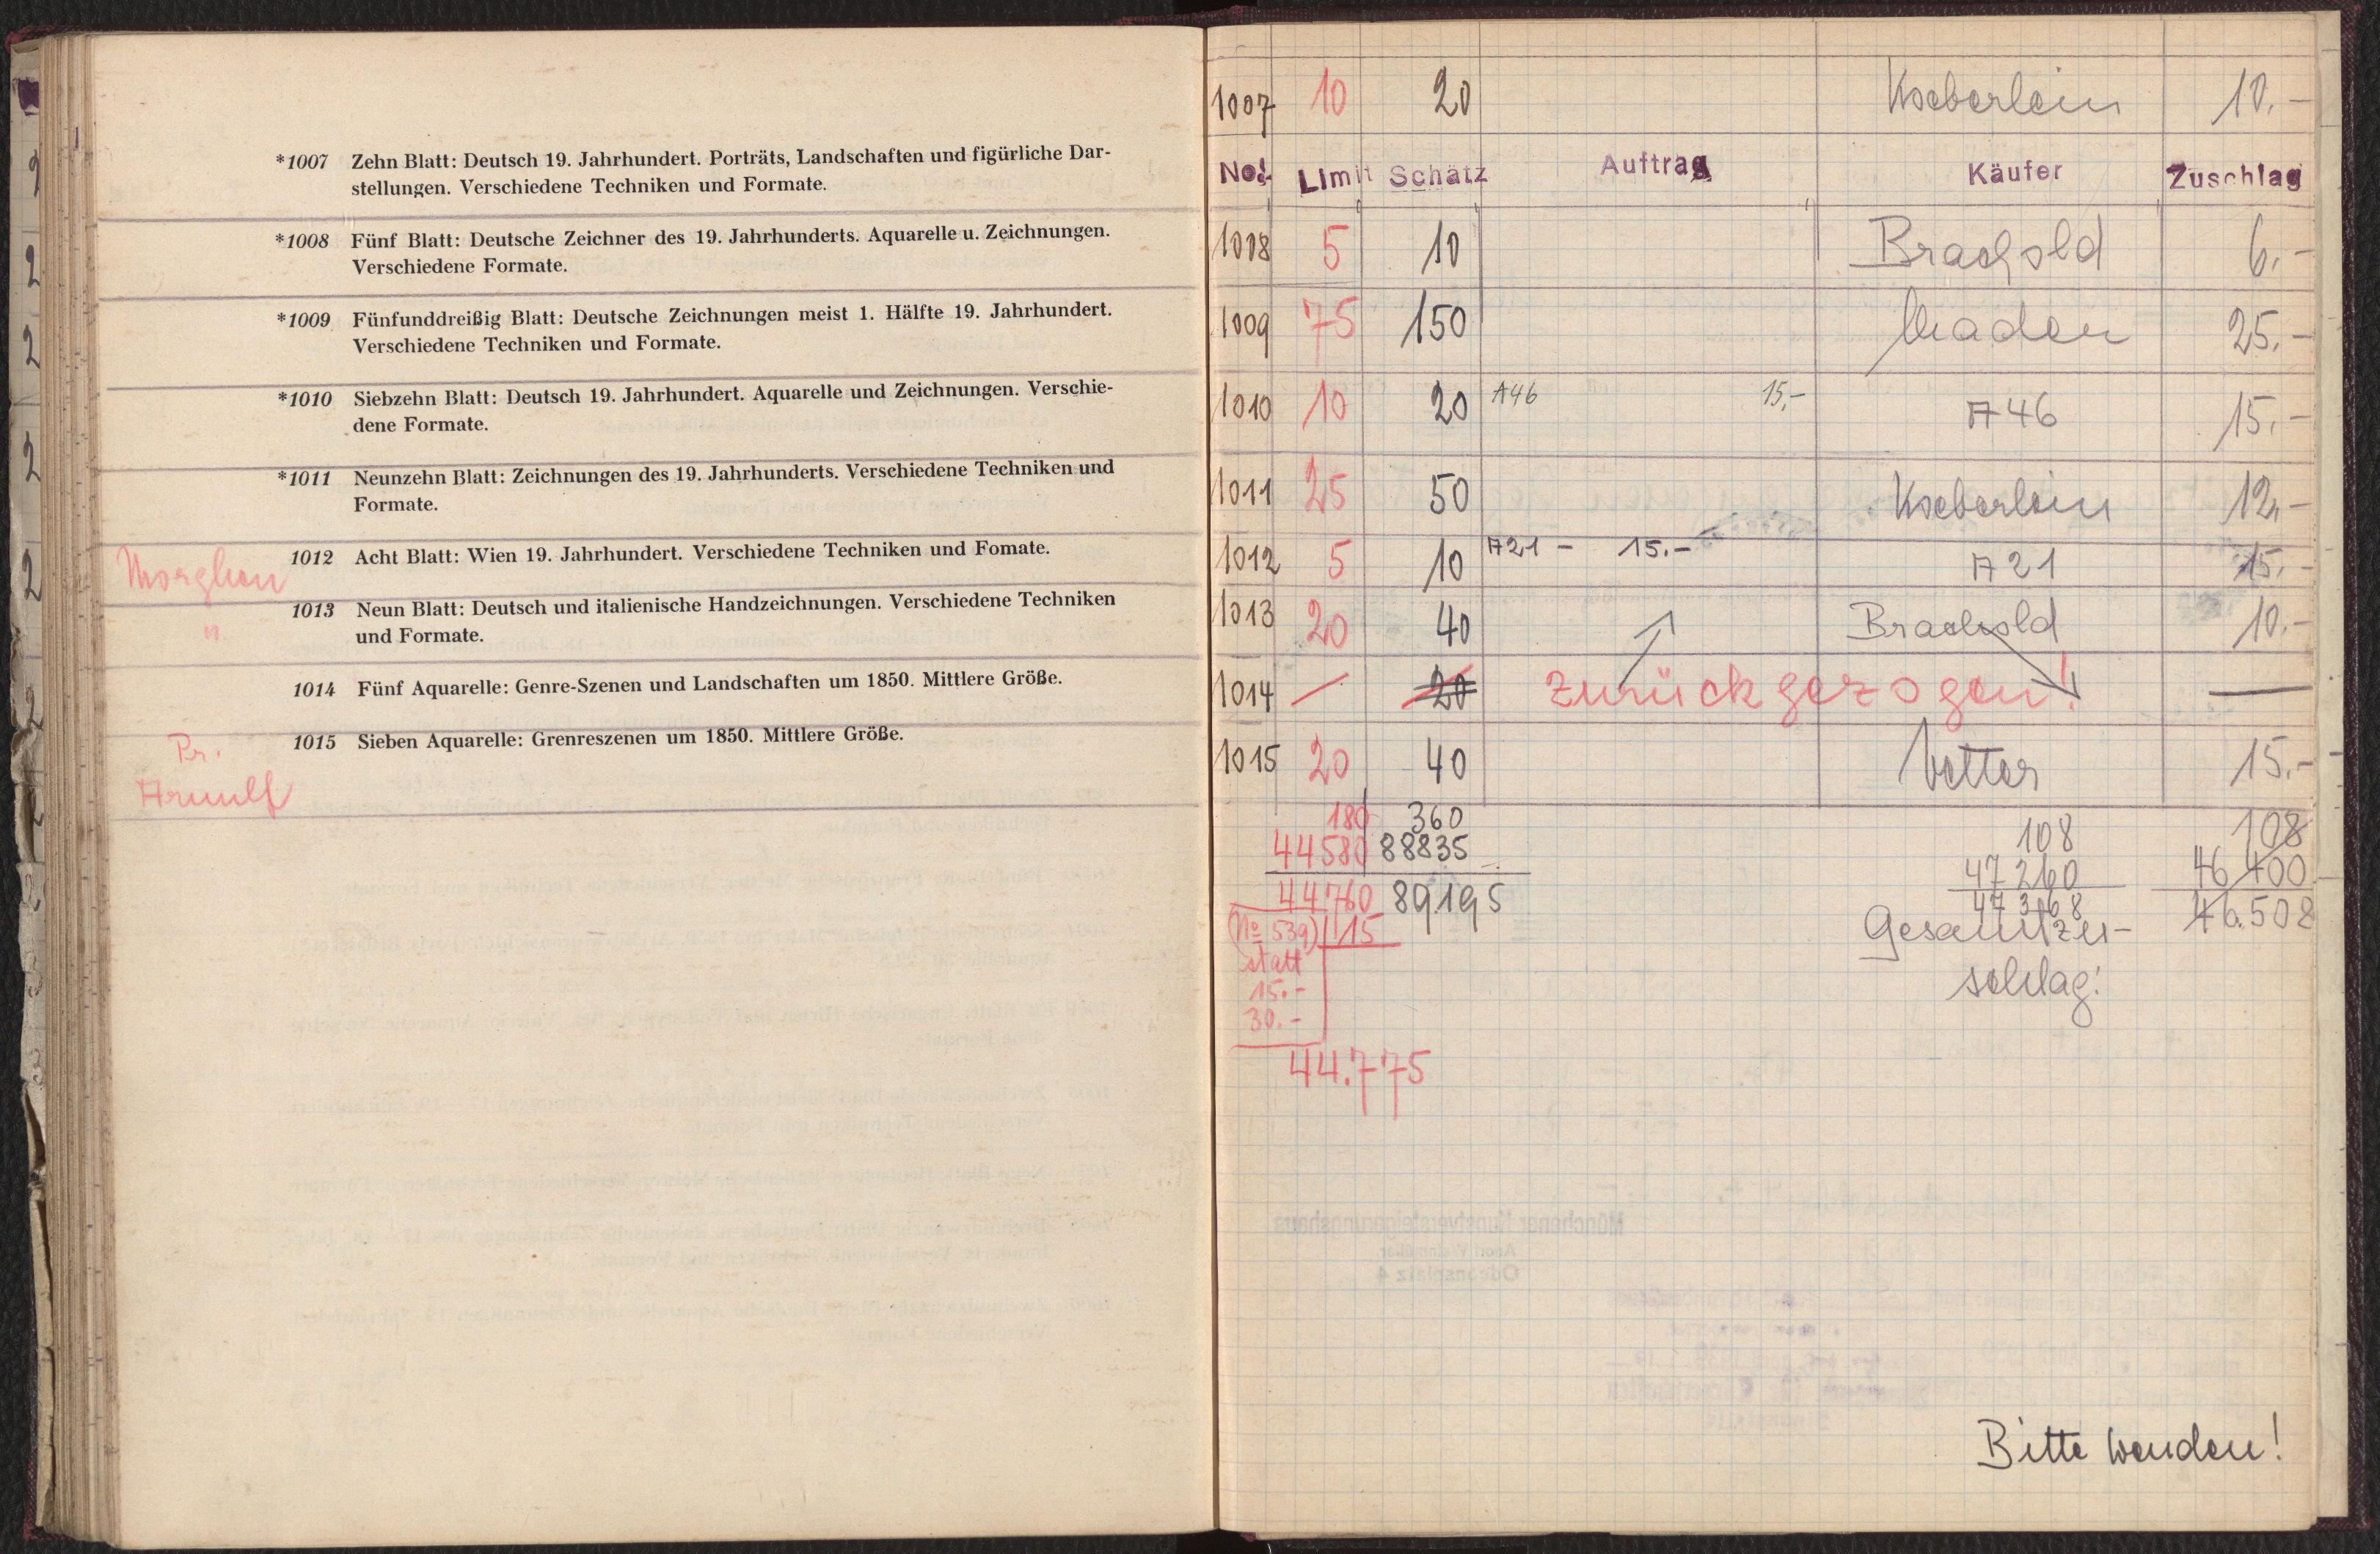 *1007 Zehn Blatt: Deutsch 19. Jahrhundert. Porträts, Landschaften und figürliche Dar-
stellungen. Verschiedene Techniken und Formate.
*1008 Fünf Blatt: Deutsche Zeichner des 19. Jahrhunderts. Aquarelle u. Zeichnungen.
Verschiedene Formate.
*1009 Fünfunddreißig Blatt: Deutsche Zeichnungen meist 1. Hälfte 19. Jahrhundert.
Verschiedene Techniken und Formate.
*1010 Siebzehn Blatt: Deutsch 19. Jahrhundert. Aquarelle und Zeichnungen. Verschie-
dene Formate.
*1011 Neunzehn Blatt: Zeichnungen des 19. Jahrhunderts. Verschiedene Techniken und
Formate.
Morghen 1012 Acht Blatt: Wien 19. Jahrhundert. Verschiedene Techniken und Fomate.
" 1013 Neun Blatt: Deutsch und italienische Handzeichnungen. Verschiedene Techniken
und Formate.
1014 Fünf Aquarelle: Genre-Szenen und Landschaften um 1850. Mittlere Größe.
Pr. 1015 Sieben Aquarelle: Grenreszenen um 1850. Mittlere Größe.
Arnulf
1007 10 20 Koeberlein 10.-
No. Limit Schätz Auftrag Käufer Zuschlag
1008 5 10 Brachold 6.-
1009 75 150 25.-
1010 10 20 A46 15,- A 46 15.-
1011 25 50 Koeberlein 12.-
1012 5 10 A21 - 15.- A 21 15.-
1013 20 40 Brachold 10.-
1014 — 20 Zurückgezogen! —
1015 20 40 Vetter 15.-
180 360 108 108
44580 88835 47260 46400
44760 89195 47368 46.508
(No 539) 15 Gesamtzu-
statt schlag:
15.-
30.-
44.775
Münchener Kunstversteigerungshaus
Adolf Weinmüller
Odeonsplatz 4
Bitte wenden!